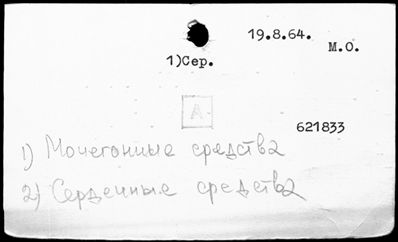 19.8.64.
М.О.
1)Сер.
А
621833
1) Мочегонные средства
2) Сердечные средства